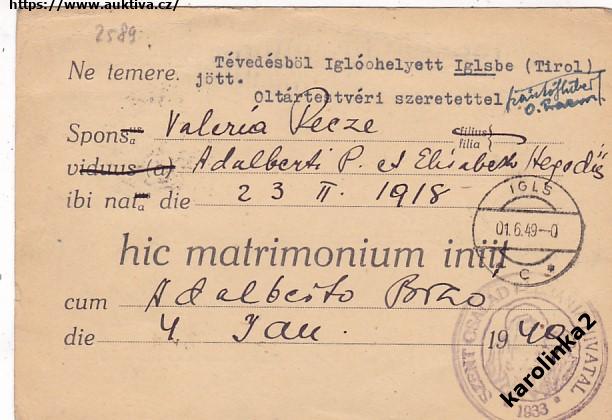 https://www.auktiva.cz/
2589
Ne temere. Tévedésböl Iglóohelyett Iglsbe (Tirol)
jött.
Oltártestvéri szeretettel
Sponsus/a Valeria Pecze filius/filia
viduus (a) Adalberti P. et Elisabeth Hegedüs
ibi natus/a die 23 II. 1918
IGLS
01.6.49-0
c
hic matrimonium iniit
cum Adalberto
die 4 Jan. 19
SZENT CSALÁD
1933
karolinka2